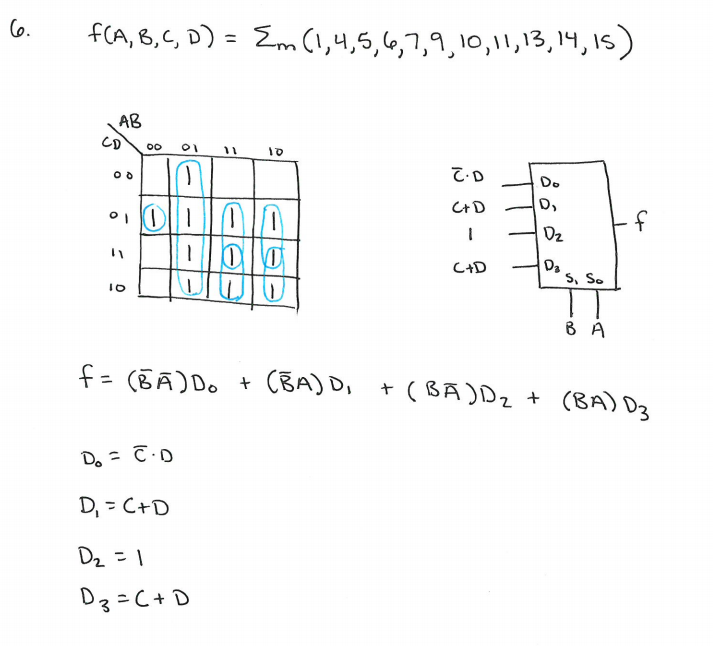 6. f(A,B,C,D) = Σm(1,4,5,6,7,9,10,11,13,14,15)
AB
CD 00 01 11 10
00 1
01 1 1 1 1
11 1 1 1
10 1 1 1
C̅·D D₀
C+D D₁ f
1 D₂
C+D D₃
S₁ S₀
B A
f = (B̅A̅)D₀ + (B̅A)D₁ + (BA̅)D₂ + (BA)D₃
D₀ = C̅·D
D₁ = C+D
D₂ = 1
D₃ = C+D